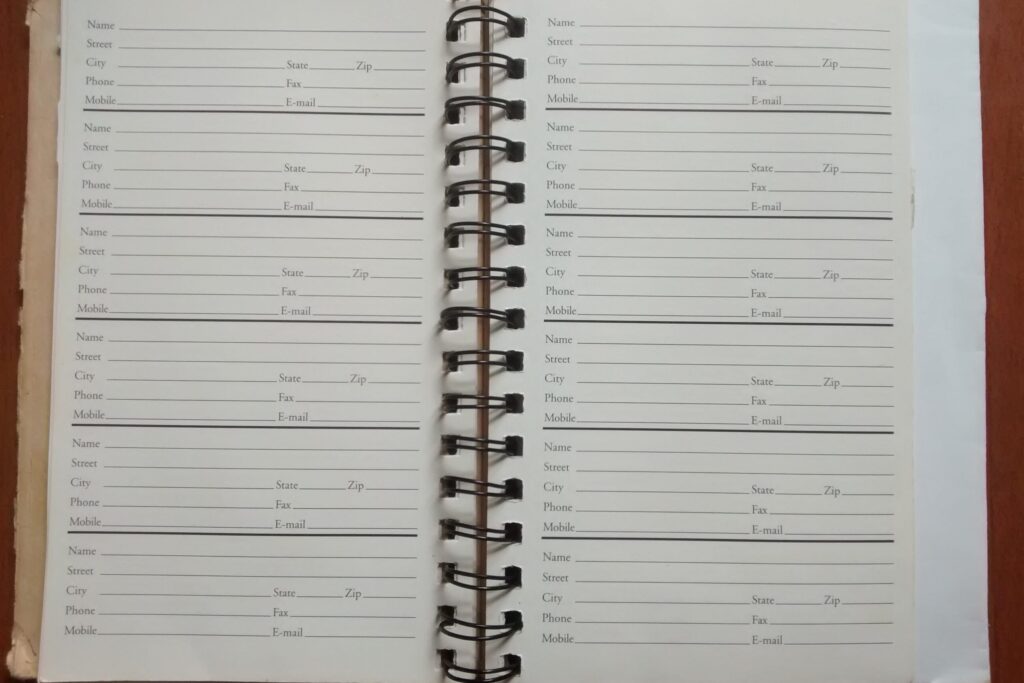 Name
Street
City State Zip
Phone Fax
Mobile E-mail
Name
Street
City State Zip
Phone Fax
Mobile E-mail
Name
Street
City State Zip
Phone Fax
Mobile E-mail
Name
Street
City State Zip
Phone Fax
Mobile E-mail
Name
Street
City State Zip
Phone Fax
Mobile E-mail
Name
Street
City State Zip
Phone Fax
Mobile E-mail
Name
Street
City State Zip
Phone Fax
Mobile E-mail
Name
Street
City State Zip
Phone Fax
Mobile E-mail
Name
Street
City State Zip
Phone Fax
Mobile E-mail
Name
Street
City State Zip
Phone Fax
Mobile E-mail
Name
Street
City State Zip
Phone Fax
Mobile E-mail
Name
Street
City State Zip
Phone Fax
Mobile E-mail